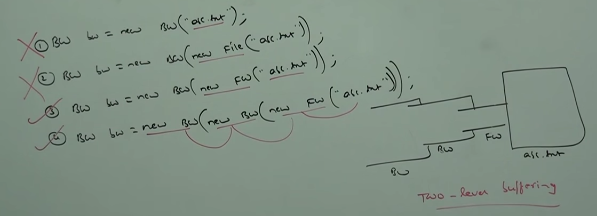 ① BW bw = new BW("abc.txt");
② BW bw = new BW(new File("abc.txt"));
③ BW bw = new BW(new FW("abc.txt"));
④ BW bw = new BW(new BW(new FW("abc.txt")));
FW
BW
BW
abc.txt
Two-level buffering